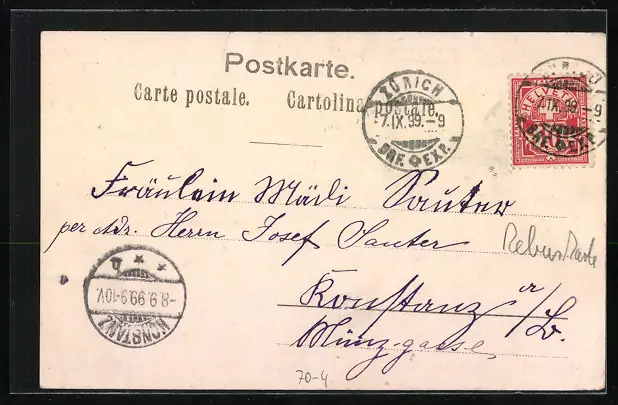 Postkarte.
Carte postale. Cartolina postale.
ZÜRICH
7.IX.99.-9
BRF. EXP.
ZÜRICH
7.IX.99.-9
BRF. EXP.
HELVETIA
Fräulein Mädi Sauter
per Adr. Herrn Josef Sauter
Rebus Karte
Konstanz a/B.
Münz-gasse
KONSTANZ
-8.9.99.9-10V.
70-4